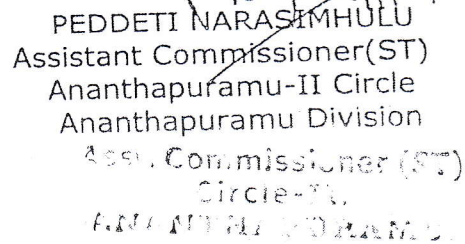 PEDDETI NARASIMHULU
Assistant Commissioner(ST)
Ananthapuramu-II Circle
Ananthapuramu Division
Asst. Commissioner (ST)
Circle-II,
ANANTHAPURAMU.